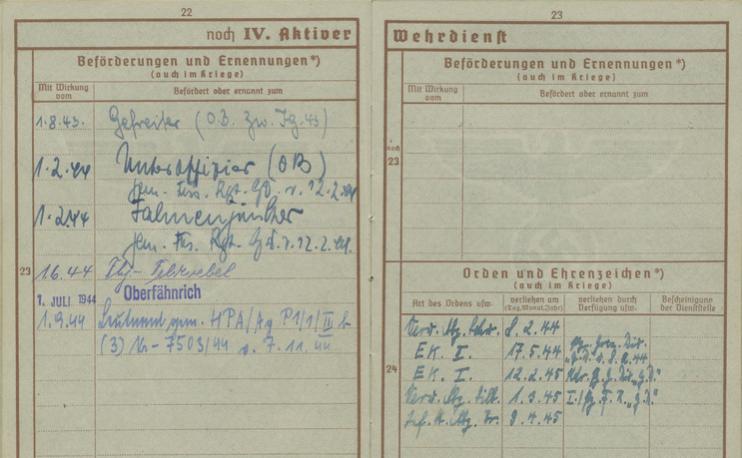 22
noch IV. Aktiver
Beförderungen und Ernennungen*)
(auch im Kriege)
Mit Wirkung vom
Befördert oder ernannt zum
1.8.43. Gefreiter (O.B. Zw. Jg. 43)
1.2.44 Unteroffizier (OB)
gem. Rgt. GD. v. 12.2.44
1.2.44 Fahnenjunker
gem. Rgt. v. 12.2.44.
23 1.6.44 Fhj.-Feldwebel
1. JULI 1944 Oberfähnrich
1.9.44 Leutnant gem. HPA/Ag P1/1/III b
(3) Nr. 7503/44 v. 7.11.44
23
Wehrdienst
Beförderungen und Ernennungen*)
(auch im Kriege)
Mit Wirkung vom
Befördert oder ernannt zum
noch
23
Orden und Ehrenzeichen*)
(auch im Kriege)
Art des Ordens usw.
verliehen am
(Tag, Monat, Jahr)
verliehen durch
Verfügung usw.
Bescheinigung
der Dienststelle
Verw. Abz. 8.2.44
EK. I. 17.5.44 Div.
24 EK. I. 12.2.45 Div. "G.D."
Verw. Abz. silb. 1.3.45 "G.D."
Inf. St. Abz. 9.4.45